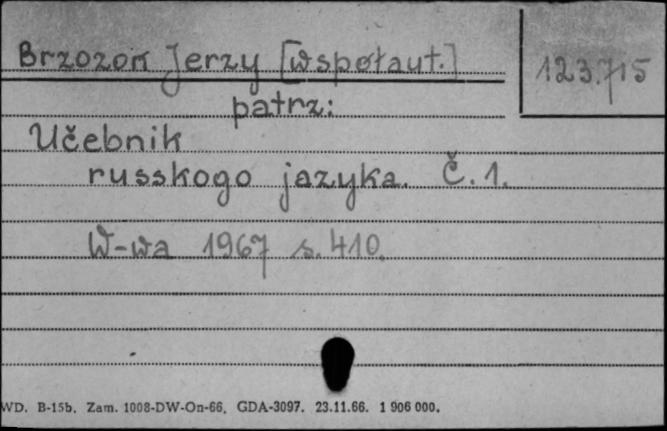 Brzozoń Jerzy [współaut.]
123.715
patrz:
Učebnik
russkogo jazyka. Č. 1.
W-wa 1967 s. 410.
WD. B-15b. Zam. 1008-DW-On-66. GDA-3097. 23.11.66. 1 906 000.